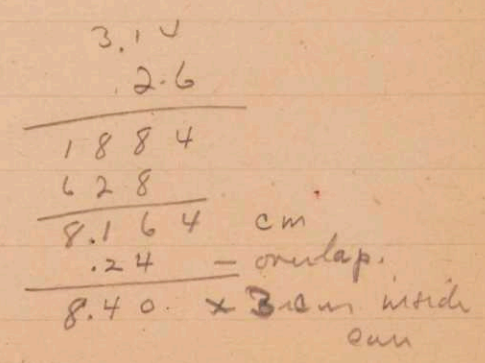 3.14
.2.6
1884
628
8.164 cm
.24 - overlap.
8.40. x 3 cm inside